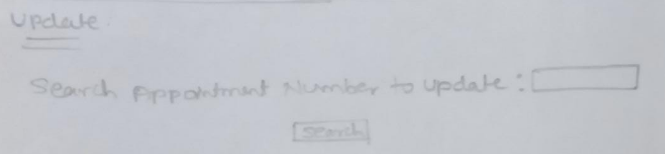 Update.
Search Appointment Number to update :
Search